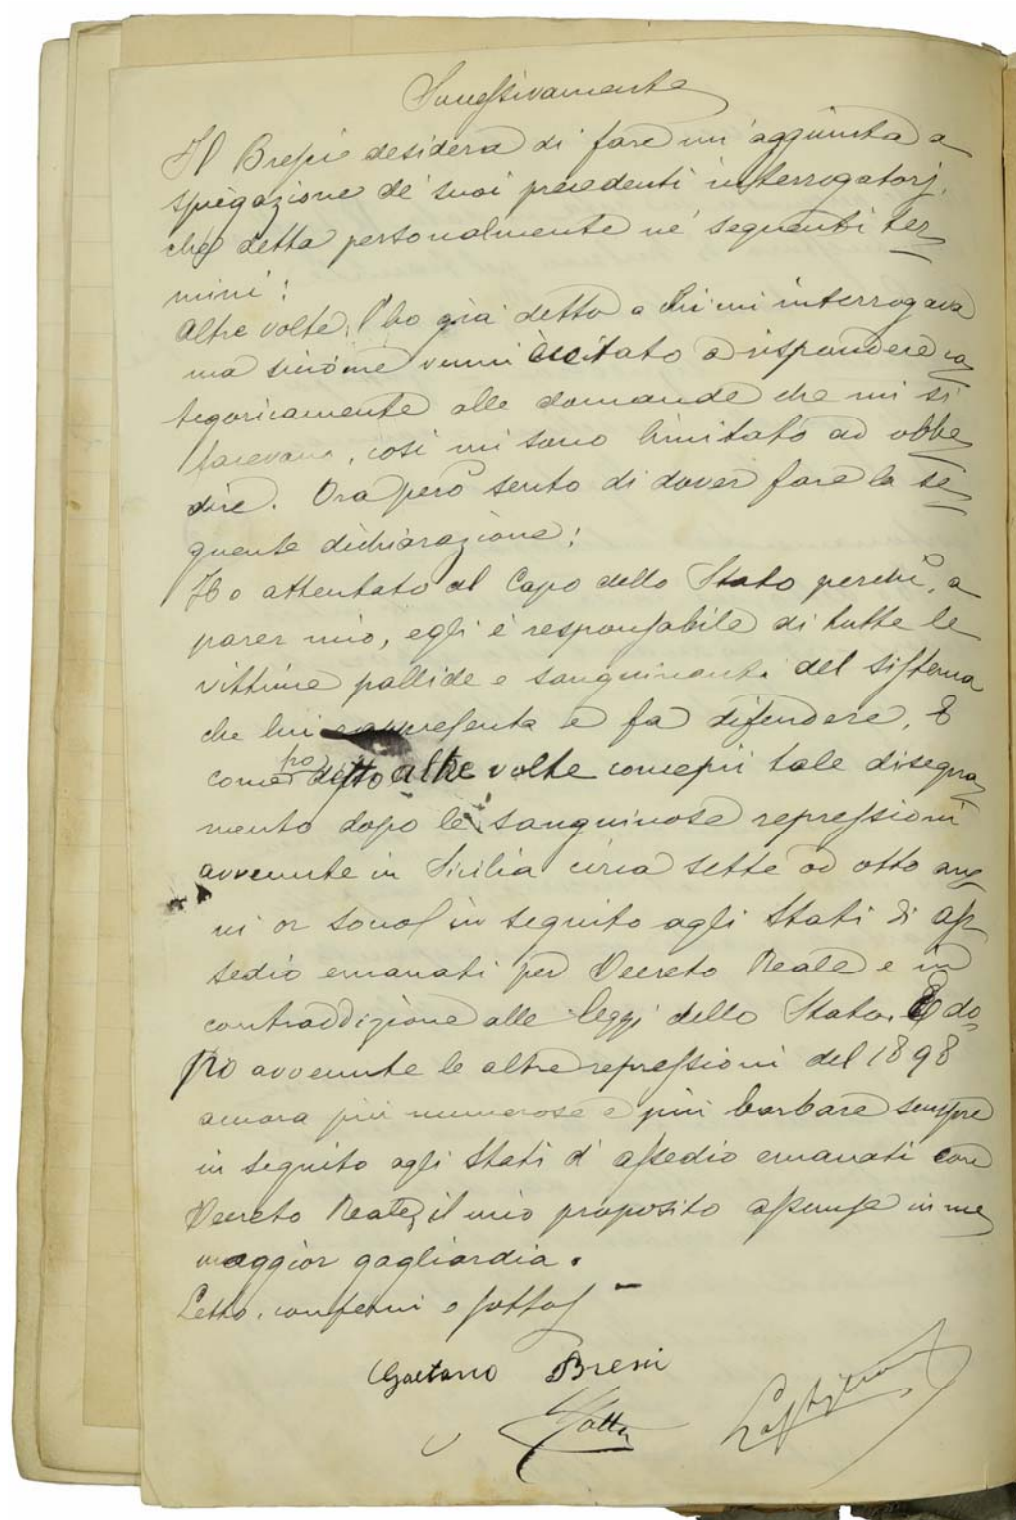 Successivamente
Il Bresci desidera di fare un'aggiunta a
spiegazione de' suoi precedenti interrogatorj,
che detta personalmente ne' seguenti ter
mini:
Altre volte l'ho già detto a chi mi interrogava
ma siccome venni eccitato a rispondere ca
tegoricamente alle domande che mi si
facevano, così mi sono limitato ad obbe
dire. Ora però sento di dover fare la se
guente dichiarazione:
Ho attentato al Capo dello Stato perchè, a
parer mio, egli è responsabile di tutte le
vittime pallide e sanguinanti del sistema
che lui rappresenta e fa difendere. E
come ho detto altre volte concepii tale disegna
mento dopo le sanguinose repressioni
avvenute in Sicilia circa sette od otto an
ni or sono in seguito agli Stati di as
sedio emanati per Decreto Reale e in
contraddizione alle leggi dello Stato. E do
po avvenute le altre repressioni del 1898
ancora più numerose e più barbare sempre
in seguito agli Stati d'assedio emanati con
Decreto Reale, il mio proposito assunse in me
maggior gagliardia.
Letto, conferm e sottos
Gaetano Bresci